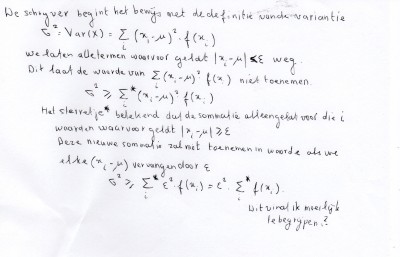 De schrijver begint het bewijs met de definitie van de variantie
σ² = Var(X) = Σᵢ (xᵢ-μ)² · f(xᵢ)
we laten alle termen waarvoor geldt |xᵢ-μ| < ε weg.
Dit laat de waarde van Σᵢ (xᵢ-μ)² f(xᵢ) niet toenemen.
σ² ≥ Σᵢ* (xᵢ-μ)² f(xᵢ)
Het sterretje * betekend dat de sommatie alleen gebeurt voor die i
waarden waarvoor geldt |xᵢ-μ| ≥ ε
Deze nieuwe sommatie zal niet toenemen in waarde als we
elke (xᵢ-μ) vervangen door ε
σ² ≥ Σᵢ* ε² · f(xᵢ) = ε² · Σᵢ* f(xᵢ).
Dit vind ik moeilijk
te begrijpen.?